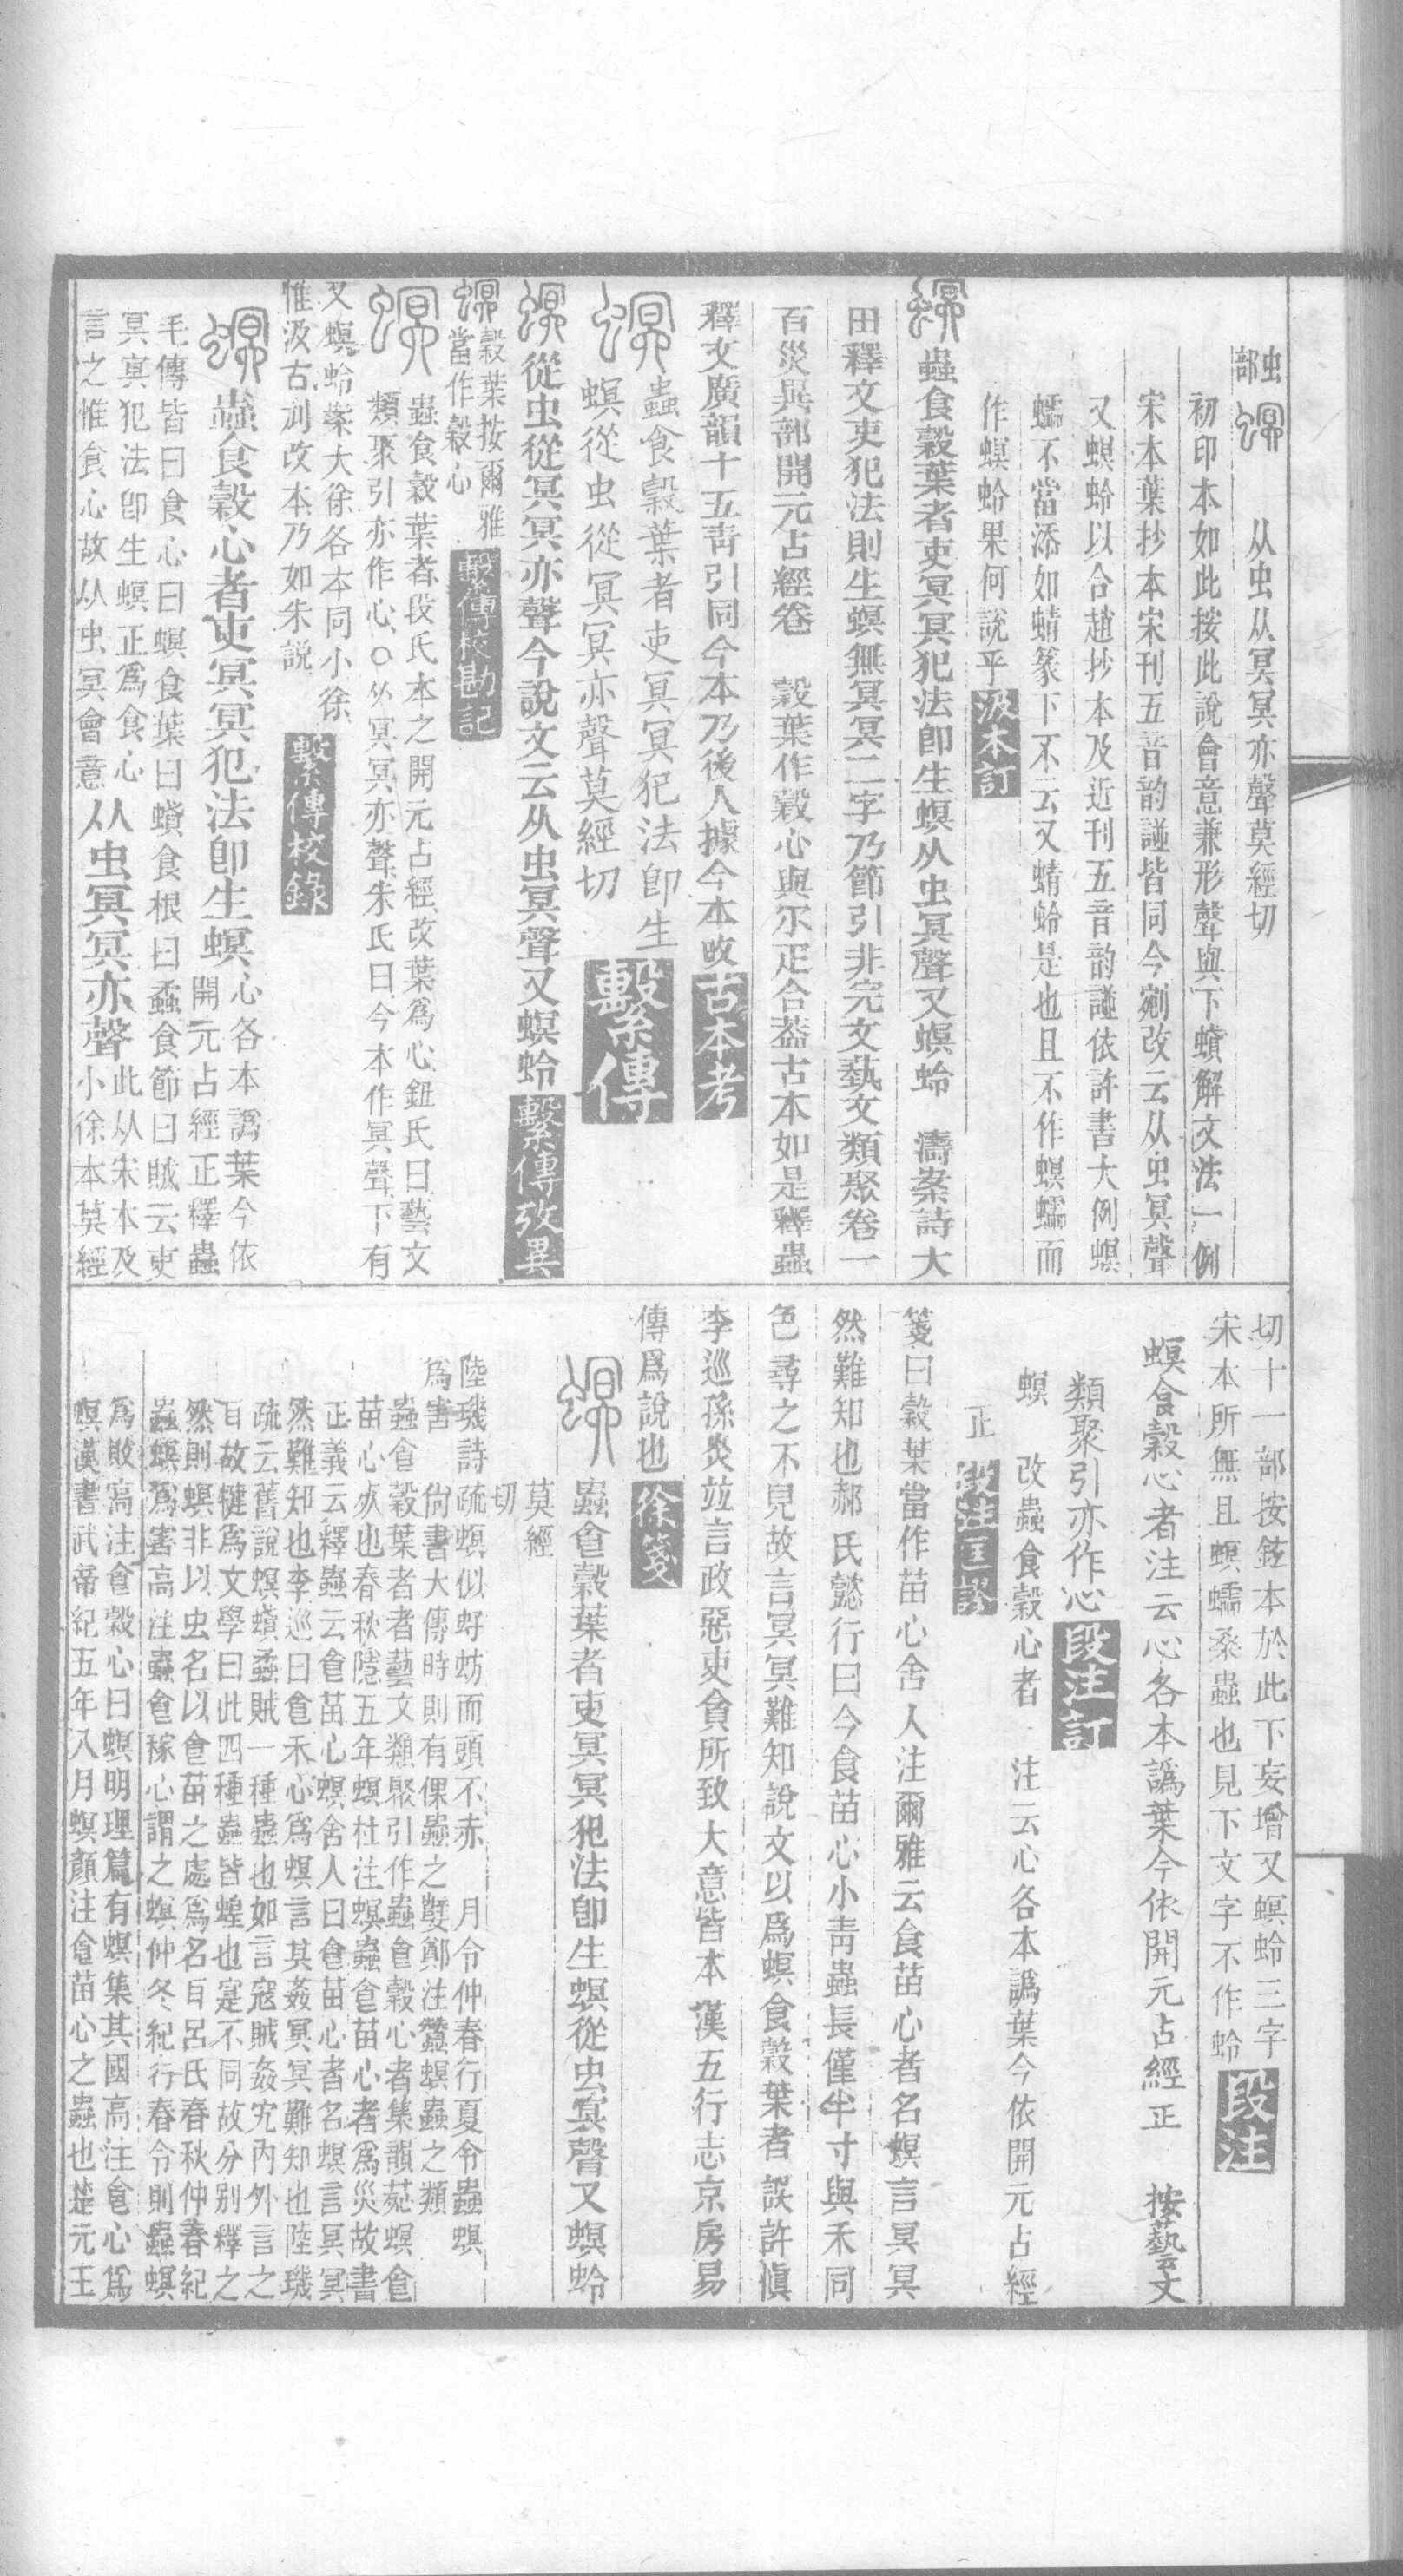 虫部 从虫从冥冥亦聲莫經切
初印本如此按此說會意兼形聲與下蟦解文法一例
宋本葉抄本宋刊五音韵譜皆同今剜改云从虫冥聲
又螟蛉以合趙抄本及近刊五音韵譜依許書大例螟
蠕不當添如蜻篆下不云又蜻蛉是也且不作螟蠕而
作螟蛉果何說乎汲本訂
蟲食穀葉者吏冥冥犯法卽生螟从虫冥聲又螟蛉 濤案詩大
田釋文吏犯法則生螟無冥冥二字乃節引非完文藝文類聚卷一
百災異部開元占經卷 穀葉作穀心與尒疋合葢古本如是釋蟲
釋文廣韻十五青引同今本乃後人據今本攺古本考
蟲食穀葉者吏冥冥犯法卽生
螟從虫從冥冥亦聲莫經切繫傳
從虫從冥冥亦聲今說文云从虫冥聲又螟蛉繫傳攷異
穀葉按爾雅
當作穀心繫傳校勘記
蟲食穀葉者段氏本之開元占經改葉爲心鈕氏曰藝文
類聚引亦作心〇从冥冥亦聲朱氏曰今本作冥聲下有
又螟蛉案大徐各本同小徐
惟汲古剜改本乃如朱說繫傳校錄
蟲食穀心者吏冥冥犯法卽生螟心各本譌葉今依
開元占經正釋蟲
毛傳皆曰食心曰螟食葉曰蟘食根曰蟊食節曰賊云吏
冥冥犯法卽生螟正爲食心此从宋本及
言之惟食心故从虫冥會意从虫冥冥亦聲小徐本莫經
切十一部按鉉本於此下妄增又螟蛉三字
宋本所無且螟蠕桑蟲也見下文字不作蛉段注
螟食穀心者注云心各本譌葉今依開元占經正 按藝文
類聚引亦作心段注訂
螟 改蟲食穀心者 注云心各本譌葉今依開元占經
正段注匡謬
箋曰穀葉當作苗心舍人注爾雅云食苗心者名螟言冥冥
然難知也郝氏懿行曰今食苗心小靑蟲長僅半寸與禾同
色尋之不見故言冥冥難知說文以爲螟食穀葉者誤許愼
李巡孫炎竝言政惡吏貪所致大意皆本漢五行志京房易
傳爲說也徐箋
蟲食穀葉者吏冥冥犯法卽生螟從虫冥聲又螟蛉
莫經
切
陸璣詩疏螟似虸蚄而頭不赤 月令仲春行夏令蟲螟
爲害 尙書大傳時則有倮蟲之孼鄭注蠶螟蟲之類
蟲食穀葉者者藝文類聚引作蟲食穀心者集韻蒬螟食
苗心亦也春秋隱五年螟杜注螟蟲食苗心者爲災故書
正義云釋蟲云食苗心螟舍人曰食苗心者名螟言冥冥
然難知也李巡曰食禾心爲螟言其姦冥冥難知也陸璣
疏云舊說螟蟘蟊賊一種蟲也如言寇賊姦宄內外言之
耳故犍爲文學曰此四種蟲皆蝗也寔不同故分別釋之
然則螟非以虫名以食苗之處爲名耳呂氏春秋仲春紀
蟲螟爲害高注蟲食稼心謂之螟仲冬紀行春令則蟲螟
爲敗高注食穀心曰螟明理篇有螟集其國高注食心爲
螟漢書武帝紀五年八月螟顏注食苗心之蟲也楚元王